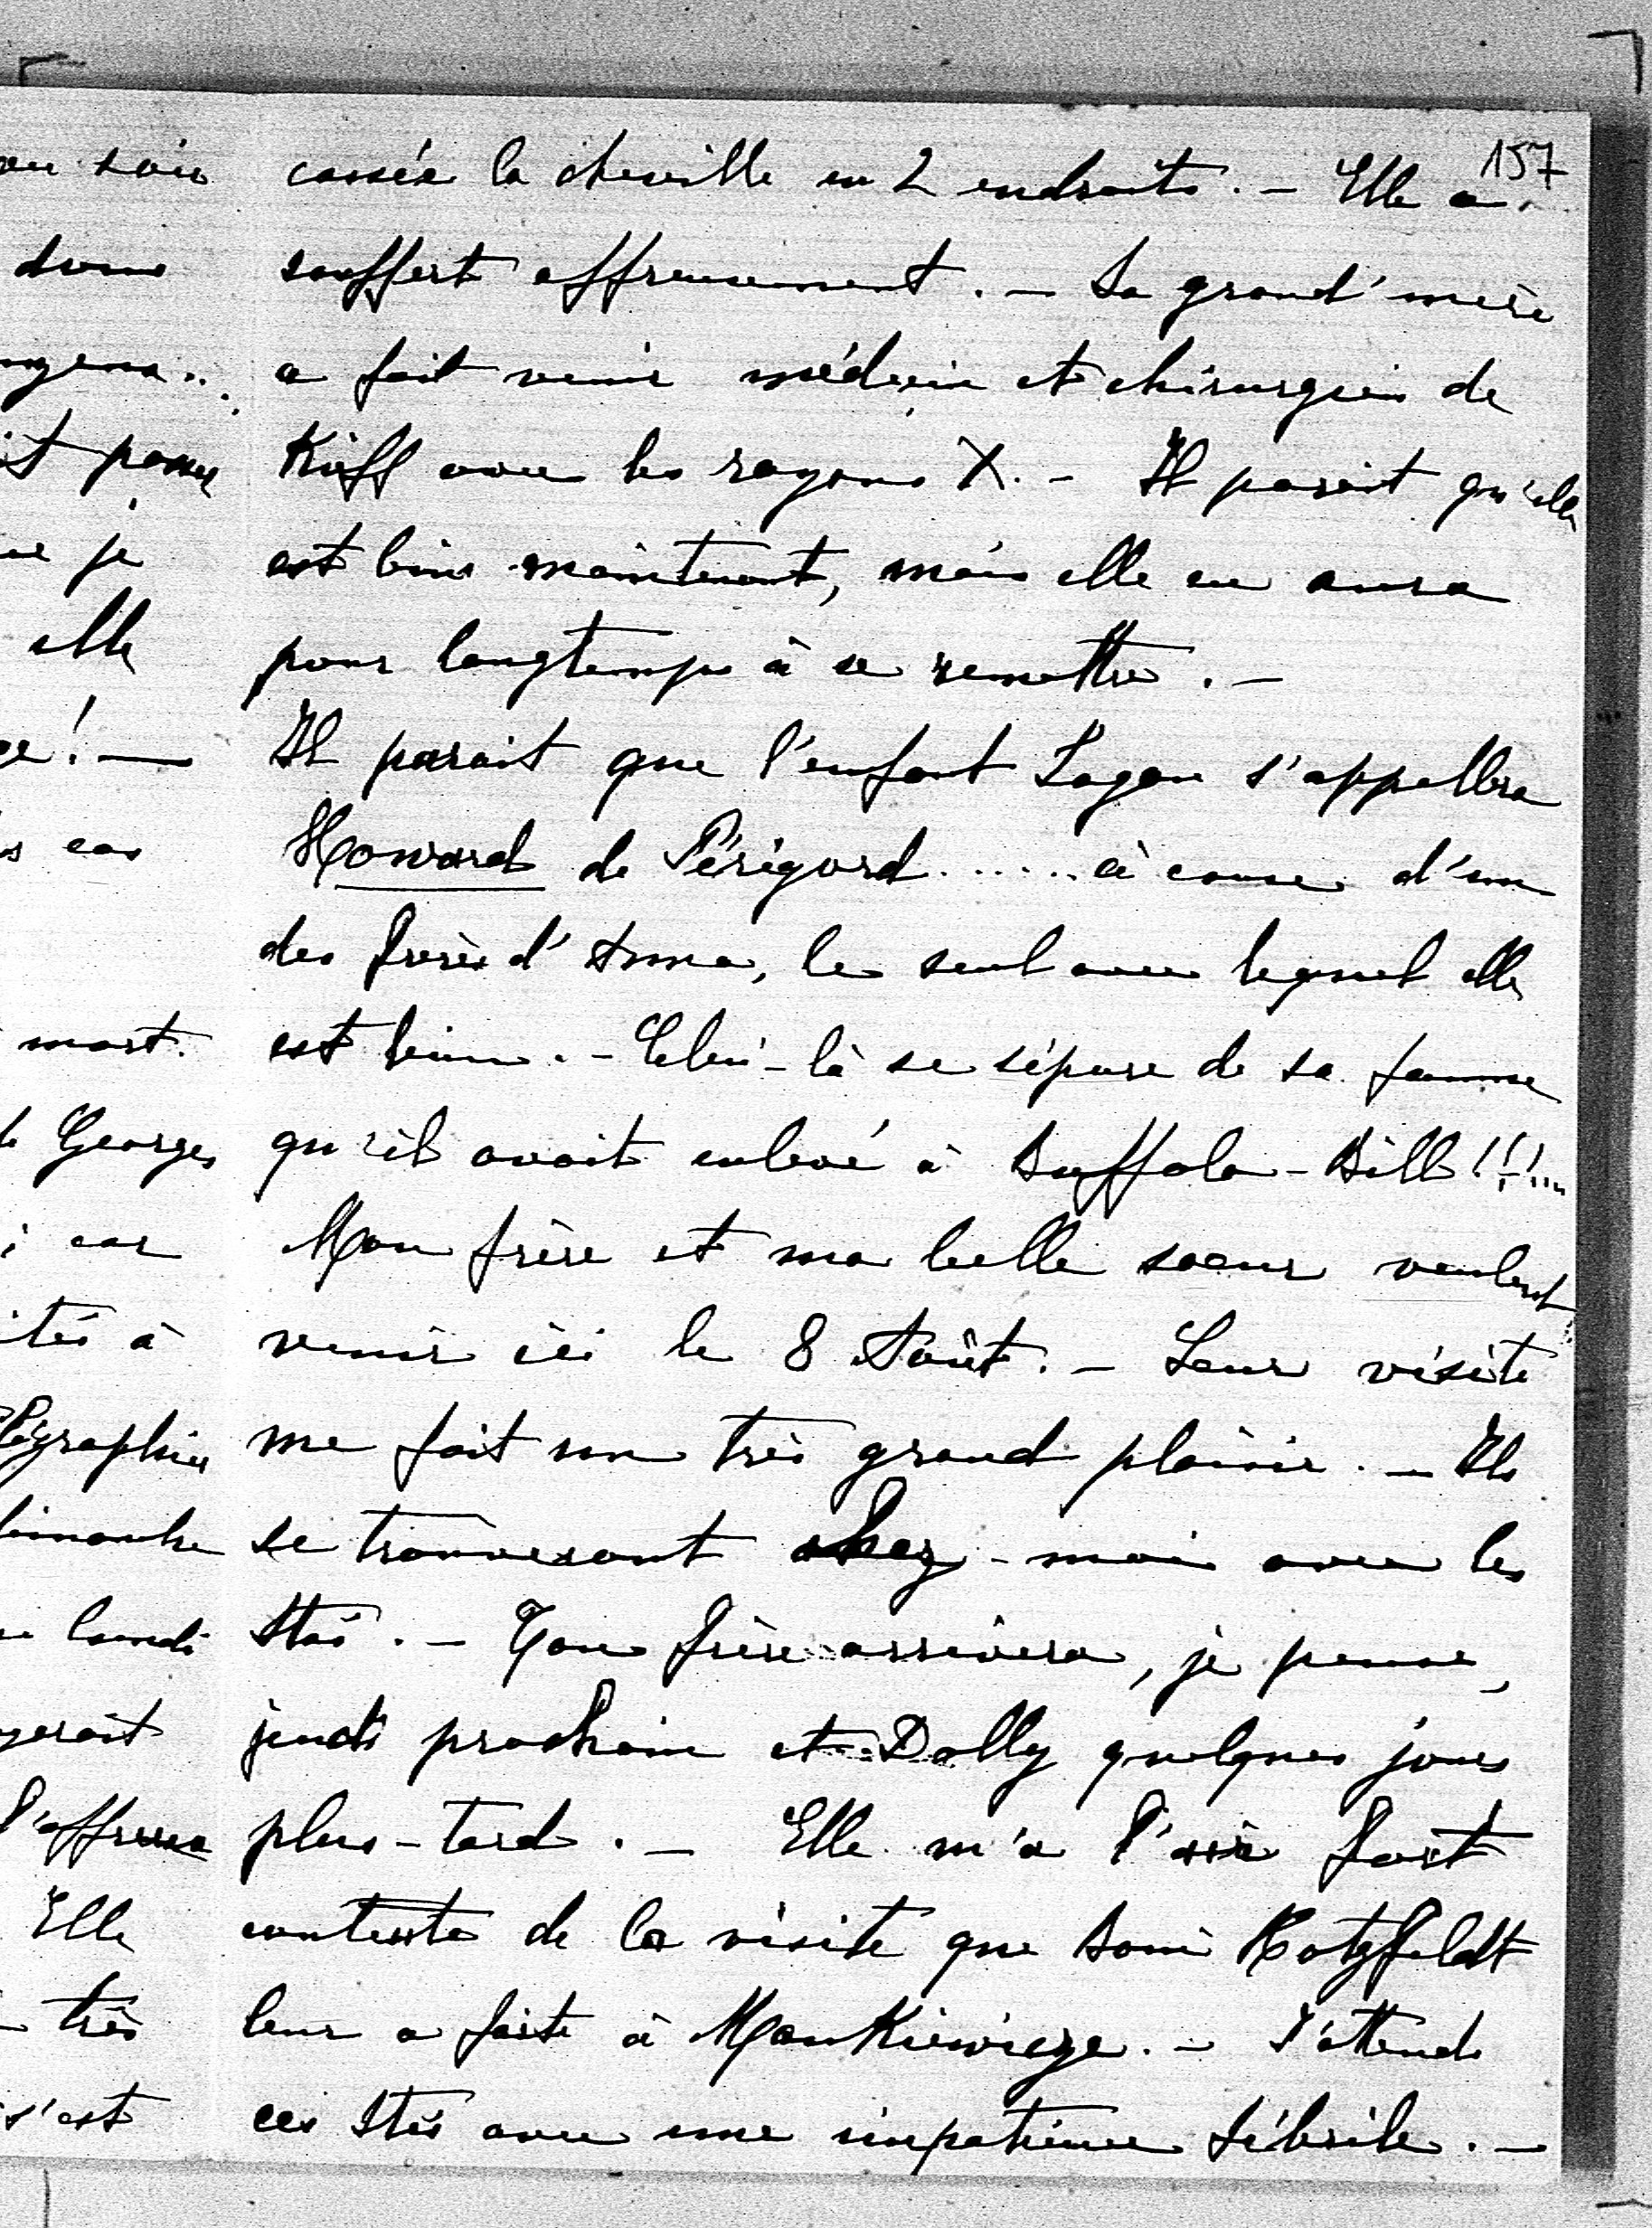 157
cassée la cheville en 2 endroits. — Elle a
souffert affreusement. — Sa grand'mère
a fait venir médecin et chirurgien de
Kieff avec les rayons X. — Il parait qu'elle
est bien maintenant, mais elle en aura
pour longtemps à se remettre. —
Il parait que l'enfant Sagan s'appellera
Howard de Périgord...... à cause d'un
des frères d'Anna, le seul avec lequel elle
est bien. — Celui-là se sépare de sa femme
qu'il avait enlevé à Buffalo-Bill!!!...
Mon frère et ma belle soeur veulent
venir ici le 8 Août. — Leur visite
me fait un très grand plaisir. — Ils
se trouveront chez-moi avec les
Stas. — Ton frère arrivera, je pense,
jeudi prochain et Dolly quelques jours
plus-tard. — Elle m'a l'air fort
contente de la visite que Hatzfeldt
leur a faite à Mankiewicze. — J'attends
ces Stas avec une impatience fébrile. —
soir
donc
passer
je
elle
!—
cas
mort.
Georges
car
à
dimanche
lundi
Elle
très
s'est